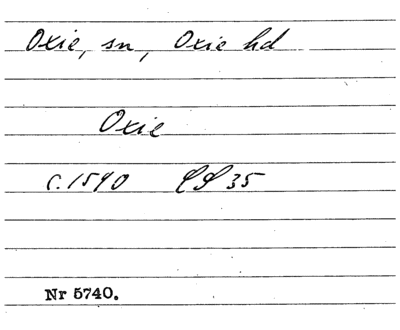 Oxie, sn, Oxie hd
Oxie
c. 1590 35
Nr 5740.